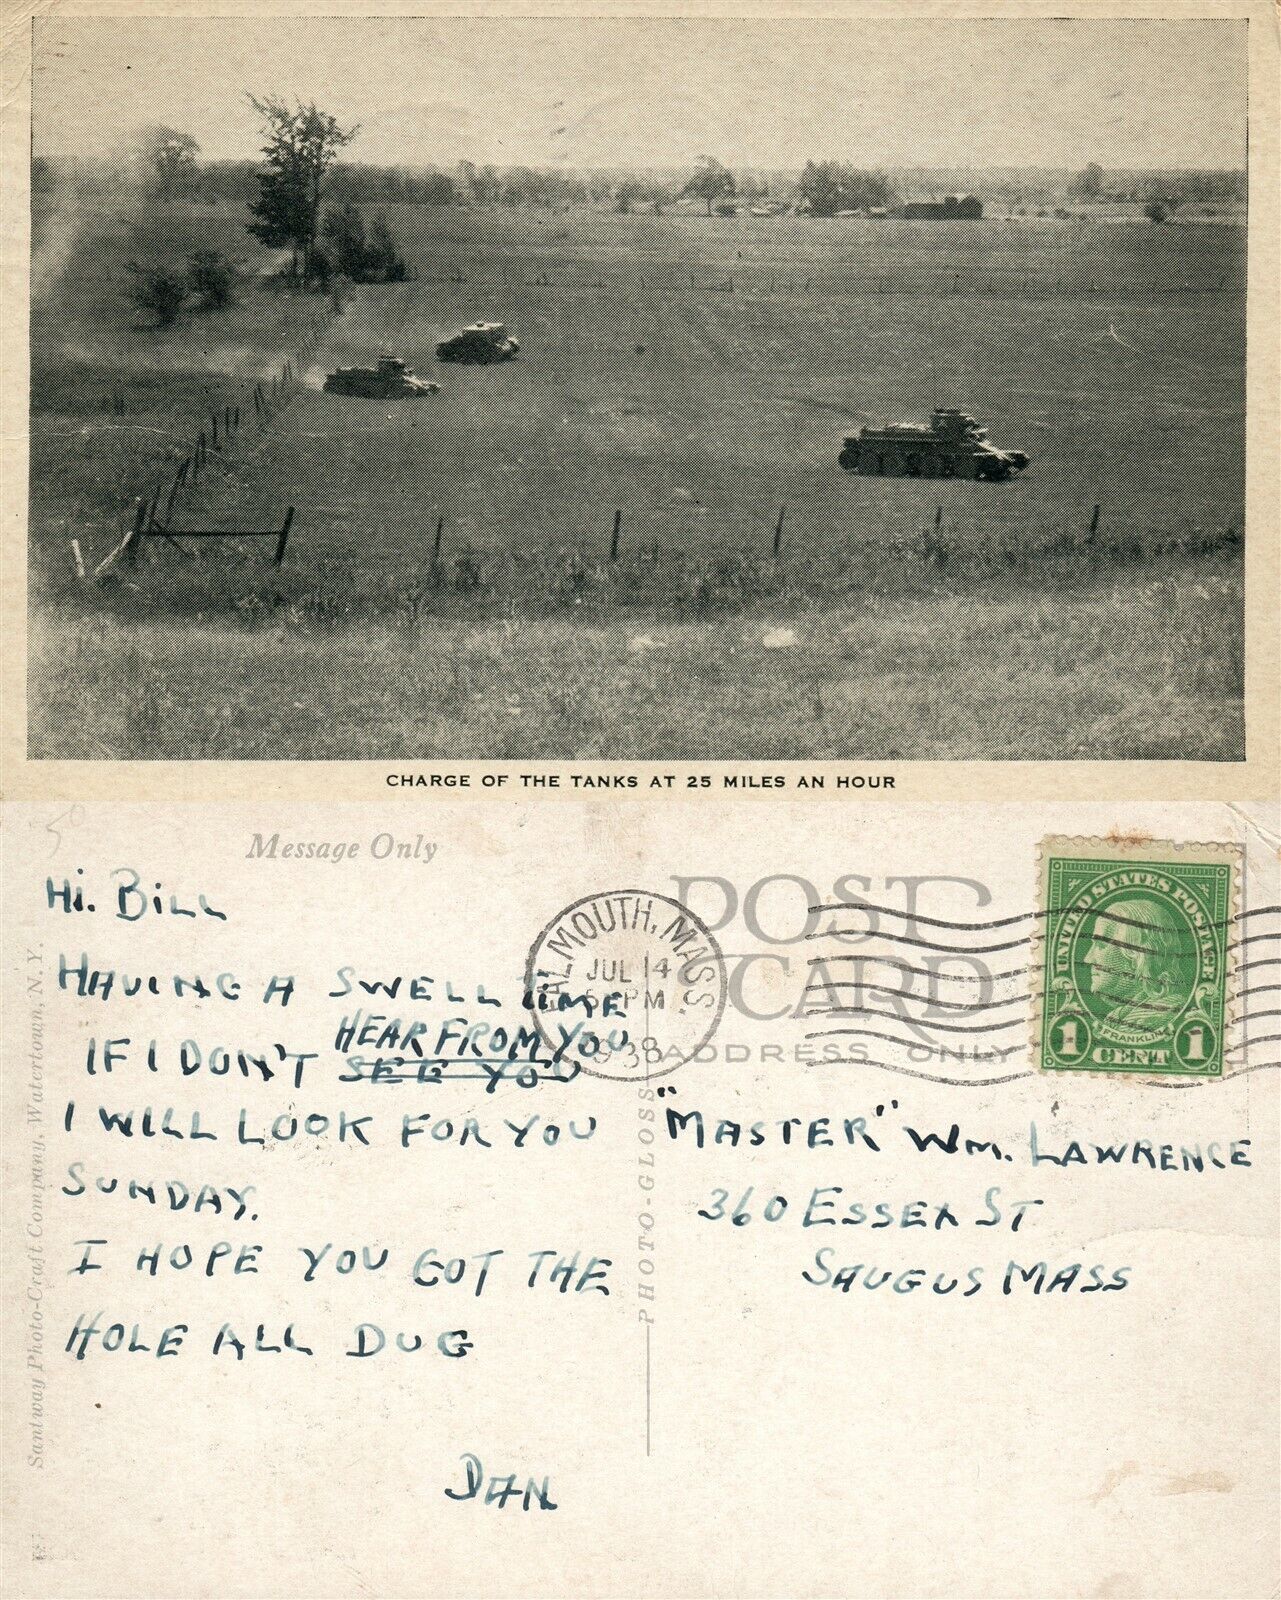 CHARGE OF THE TANKS AT 25 MILES AN HOUR
Message Only
Hi. Bill
HAVING A SWELL TIME
IF I DON'T SEE YOU HEAR FROM YOU
I WILL LOOK FOR YOU
SUNDAY.
I HOPE YOU GOT THE
HOLE ALL DUG
DAN
Santway Photo-Craft Company, Watertown, N.Y.
PHOTO-GLOSS
POST
CARD
ADDRESS ONLY
FALMOUTH, MASS.
JUL 14
PM
1938
UNITED STATES POSTAGE
FRANKLIN
1 CENT 1
"MASTER" WM. LAWRENCE
360 ESSEX ST
SAUGUS MASS